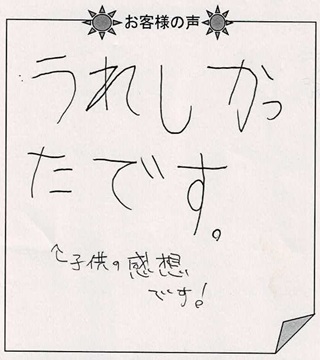 お客様の声
うれしかっ
たです。
↑子供の感想
です!